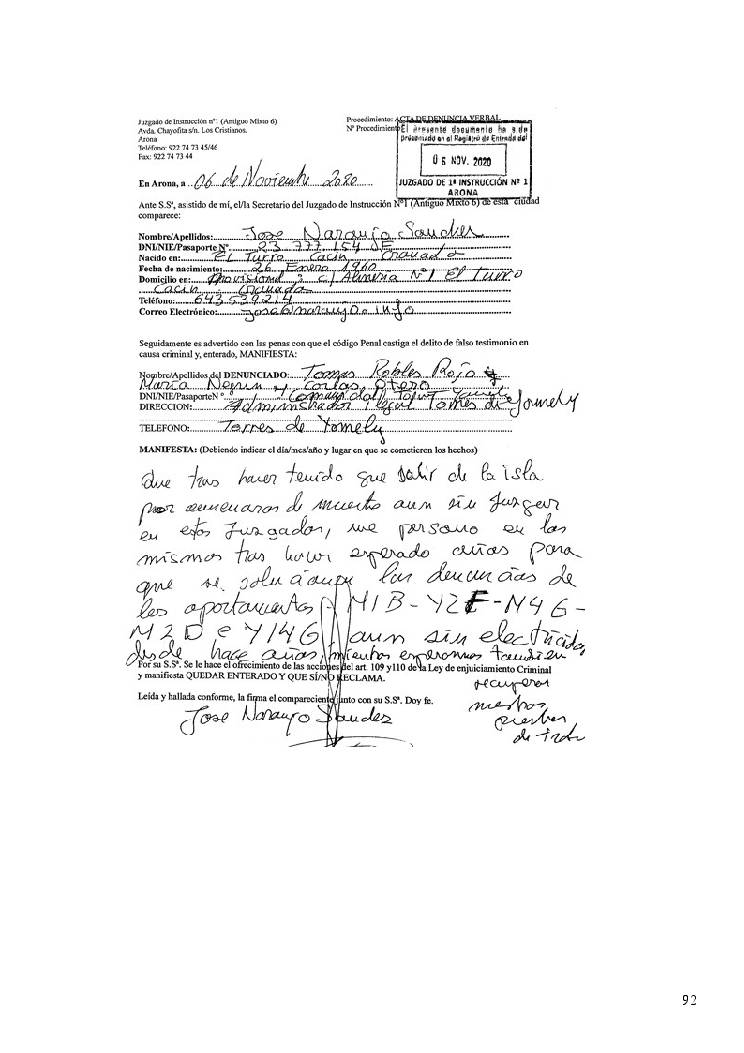 Juzgado de Instrucción nº: (Antiguo Mixto 6)
Avda. Chayofita s/n. Los Cristianos.
Arona
Teléfono: 922 74 73 45/46
Fax: 922 74 73 44
Procedimiento: ACTA DE DENUNCIA VERBAL
Nº Procedimiento
El presente documento ha sido
presentado en el Registro de Entrada del
06 NOV. 2020
JUZGADO DE 1ª INSTRUCCIÓN Nº 1
ARONA
En Arona, a 06 de Noviembre 2020
Ante S.Sª, asistido de mí, el/la Secretario del Juzgado de Instrucción Nº1 (Antiguo Mixto 6) de esta ciudad
comparece:
Nombre/Apellidos: Jose Naranjo Sandez
DNI/NIE/Pasaporte Nº 23 777 154
Nacido en: El Turro Cacín Granada
Fecha de nacimiento: 26 Enero 1960
Domicilio en: Provisional c/ Almeria Nº 1 El Turro
Cacin Granada
Teléfono: 643529214
Correo Electrónico:
Seguidamente es advertido con las penas con que el código Penal castiga el delito de falso testimonio en
causa criminal y, enterado, MANIFIESTA:
Nombre/Apellidos del DENUNCIADO: Tomas Robles Rojo y
María Negrin y Carlos Otero
DNI/NIE/Pasaporte Nº
DIRECCION: Administrador Torres de Yomely
TELEFONO: Torres de Yomely
MANIFIESTA: (Debiendo indicar el día/mes/año y lugar en que se cometieron los hechos)
Que tras haver tenido que salir de la isla
por amenazas de muerte aun sin Juzgar
en estos Juzgados, me persono en los
mismos tras haver esperado años para
que se las denuncias de
los apartamentos M1B-Y2F-N46-
M2D e Y146 aun sin electricidad
desde hace años, mientras esperamos tambien
recuperar
nuestros
puestos
de trab
For su S.Sª. Se le hace el ofrecimiento de las acciones del art. 109 y 110 de la Ley de enjuiciamiento Criminal
y manifiesta QUEDAR ENTERADO Y QUE SÍ/NO RECLAMA.
Leída y hallada conforme, la firma el compareciente junto con su S.Sª. Doy fe.
Jose Naranjo Sandez
92